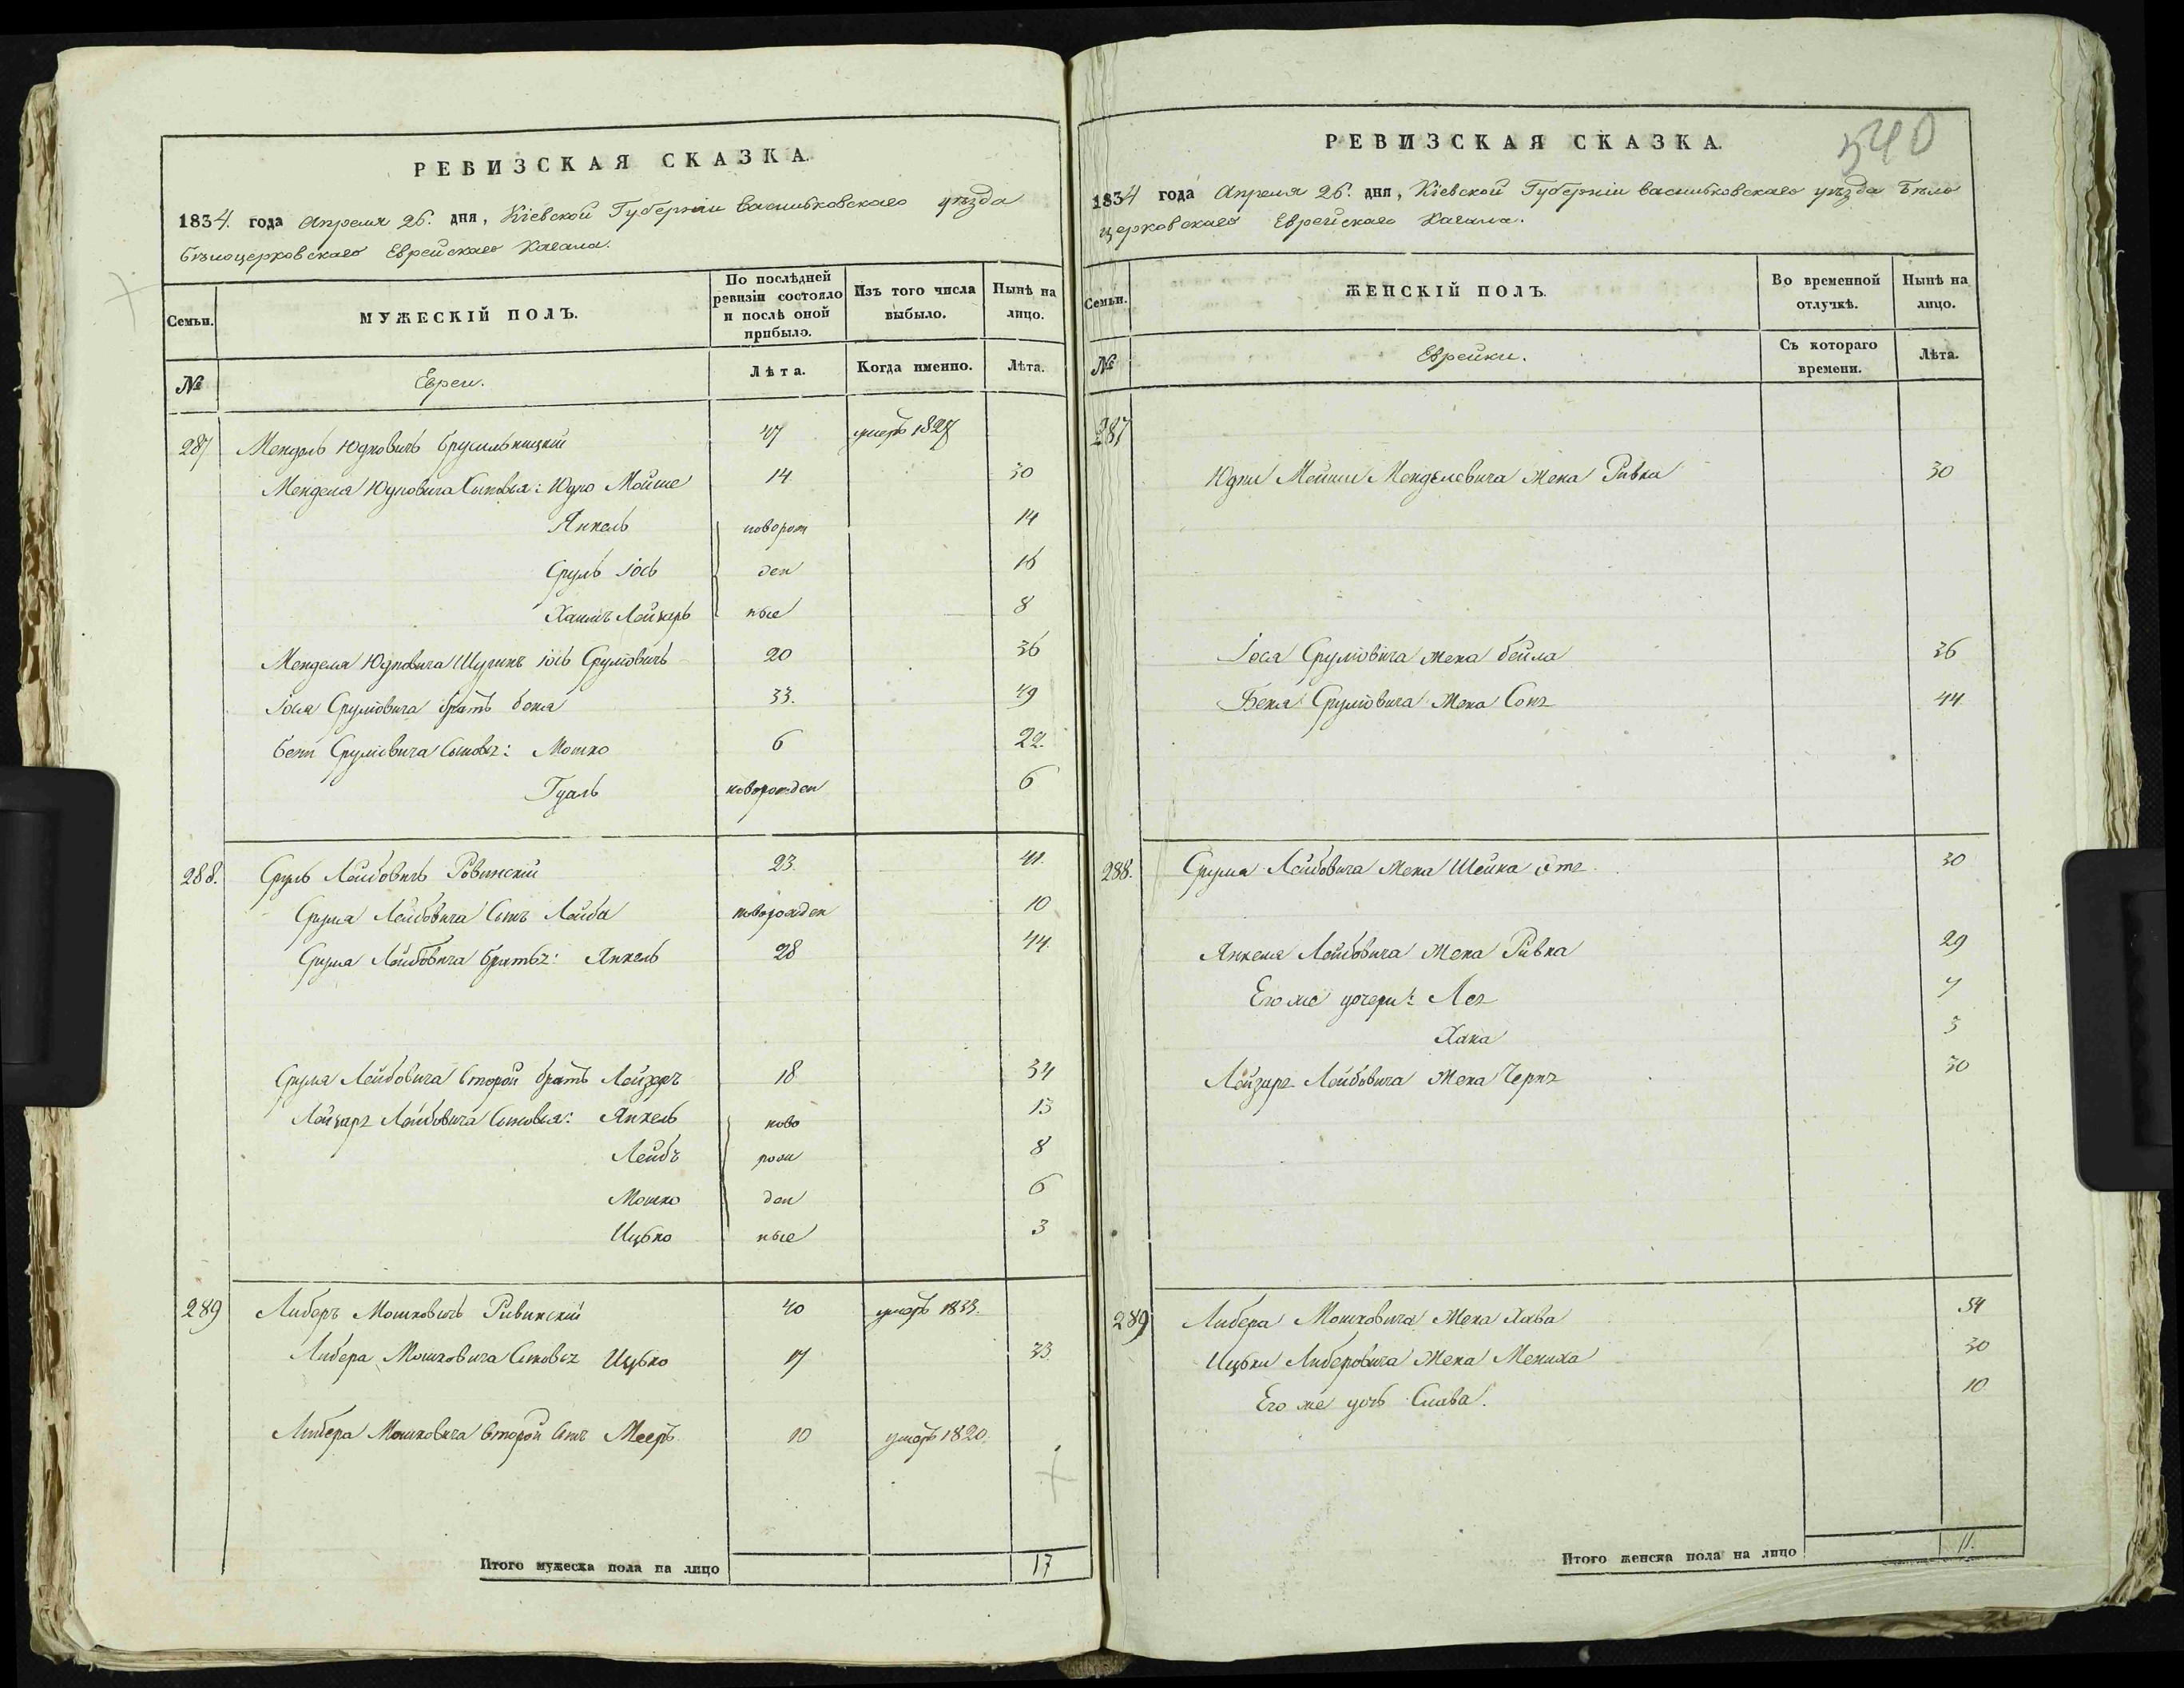 РЕВИЗСКАЯ СКАЗКА.
1834. года Апреля 26. дня, Кіевской Губерніи Васильковскаго уѣзда
Бѣлоцерковскаго Еврейскаго Кагала.
Семьи.
МУЖЕСКІЙ ПОЛЪ.
По послѣдней ревизіи состояло и послѣ оной прибыло.
Изъ того числа выбыло.
Нынѣ на лицо.
№
Евреи.
Лѣта.
Когда именно.
Лѣта.
287 Мендель Юдковичъ 47 умеръ 1827
Менделя Юдковича Сыновья: Юдко Мойше 14 30
Янкель новорож 14
Сруль Іось ден
Хаимъ Лейзеръ ные 8
Менделя Юдковича Шуринъ Іось Сруліовичъ 20 36
Іося Сруліовича братъ Беня 33. 49
Бени Сруліовича Сыновья: Мошко 6 22.
новорожден 6
288. Сруль Лейбовичъ Ровинскій 23. 41.
Сруля Лейбовича Сынъ Лейба новорожден 10
Сруля Лейбовича братья: Янкель 28 44.
Сруля Лейбовича Второй братъ Лейзеръ 18 34
Лейзера Лейбовича Сыновья: Янкель ново 13
Лейбъ рож 8
Мошко ден 6
Ицько ные 3
289 Либеръ Мошковичъ Ривинскій 40 умеръ 1833.
Либера Мошковича Сыновья Ицько 17 33.
Либера Мошковича Второй Сынъ Мееръ 10 умеръ 1820.
Итого мужеска пола на лицо 17
540
РЕВИЗСКАЯ СКАЗКА.
1834 года Апреля 26. дня, Кіевской Губерніи Васильковскаго уѣзда Бѣло
церковскаго Еврейскаго Кагала.
Семьи.
ЖЕНСКІЙ ПОЛЪ.
Во временной отлучкѣ.
Нынѣ на лицо.
№
Еврейки.
Съ котораго времени.
Лѣта.
287
Юдки Мойши Менделевича жена Ривка 30
Іося Сруліовича жена Бейла 36
Беня Сруліовича жена Сося 44
288. Сруля Лейбовича жена Шейна 30
Янкеля Лейбовича жена Ривка 29
Его же дочери: Лея 7
Хана 3
Лейзера Лейбовича жена Черня 30
289 Либера Мошковича жена Хава 54
Ицьки Либеровича жена Мениха 30
Его же дочь Слава. 10
Итого женска пола на лицо 11.